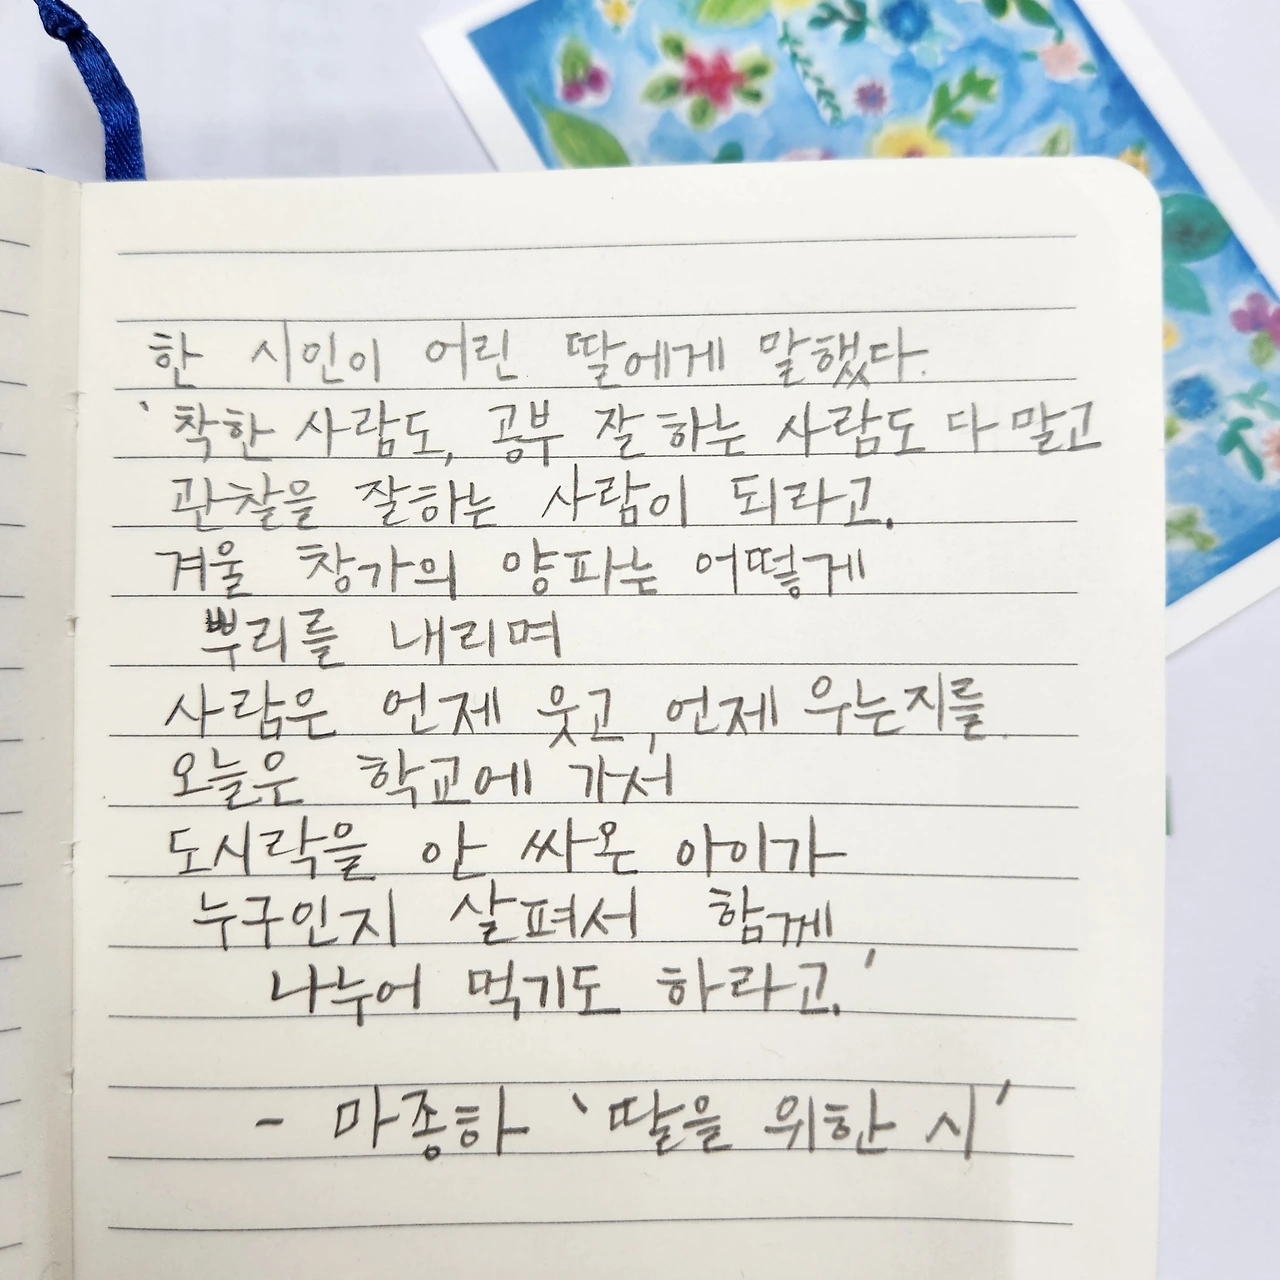 한 시인이 어린 딸에게 말했다.
'착한 사람도, 공부 잘 하는 사람도 다 말고
관찰을 잘하는 사람이 되라고.
겨울 창가의 양파는 어떻게
뿌리를 내리며
사람은 언제 웃고, 언제 우는지를.
오늘은 학교에 가서
도시락을 안 싸온 아이가
누구인지 살펴서 함께
나누어 먹기도 하라고.'
- 마종하 '딸을 위한 시'